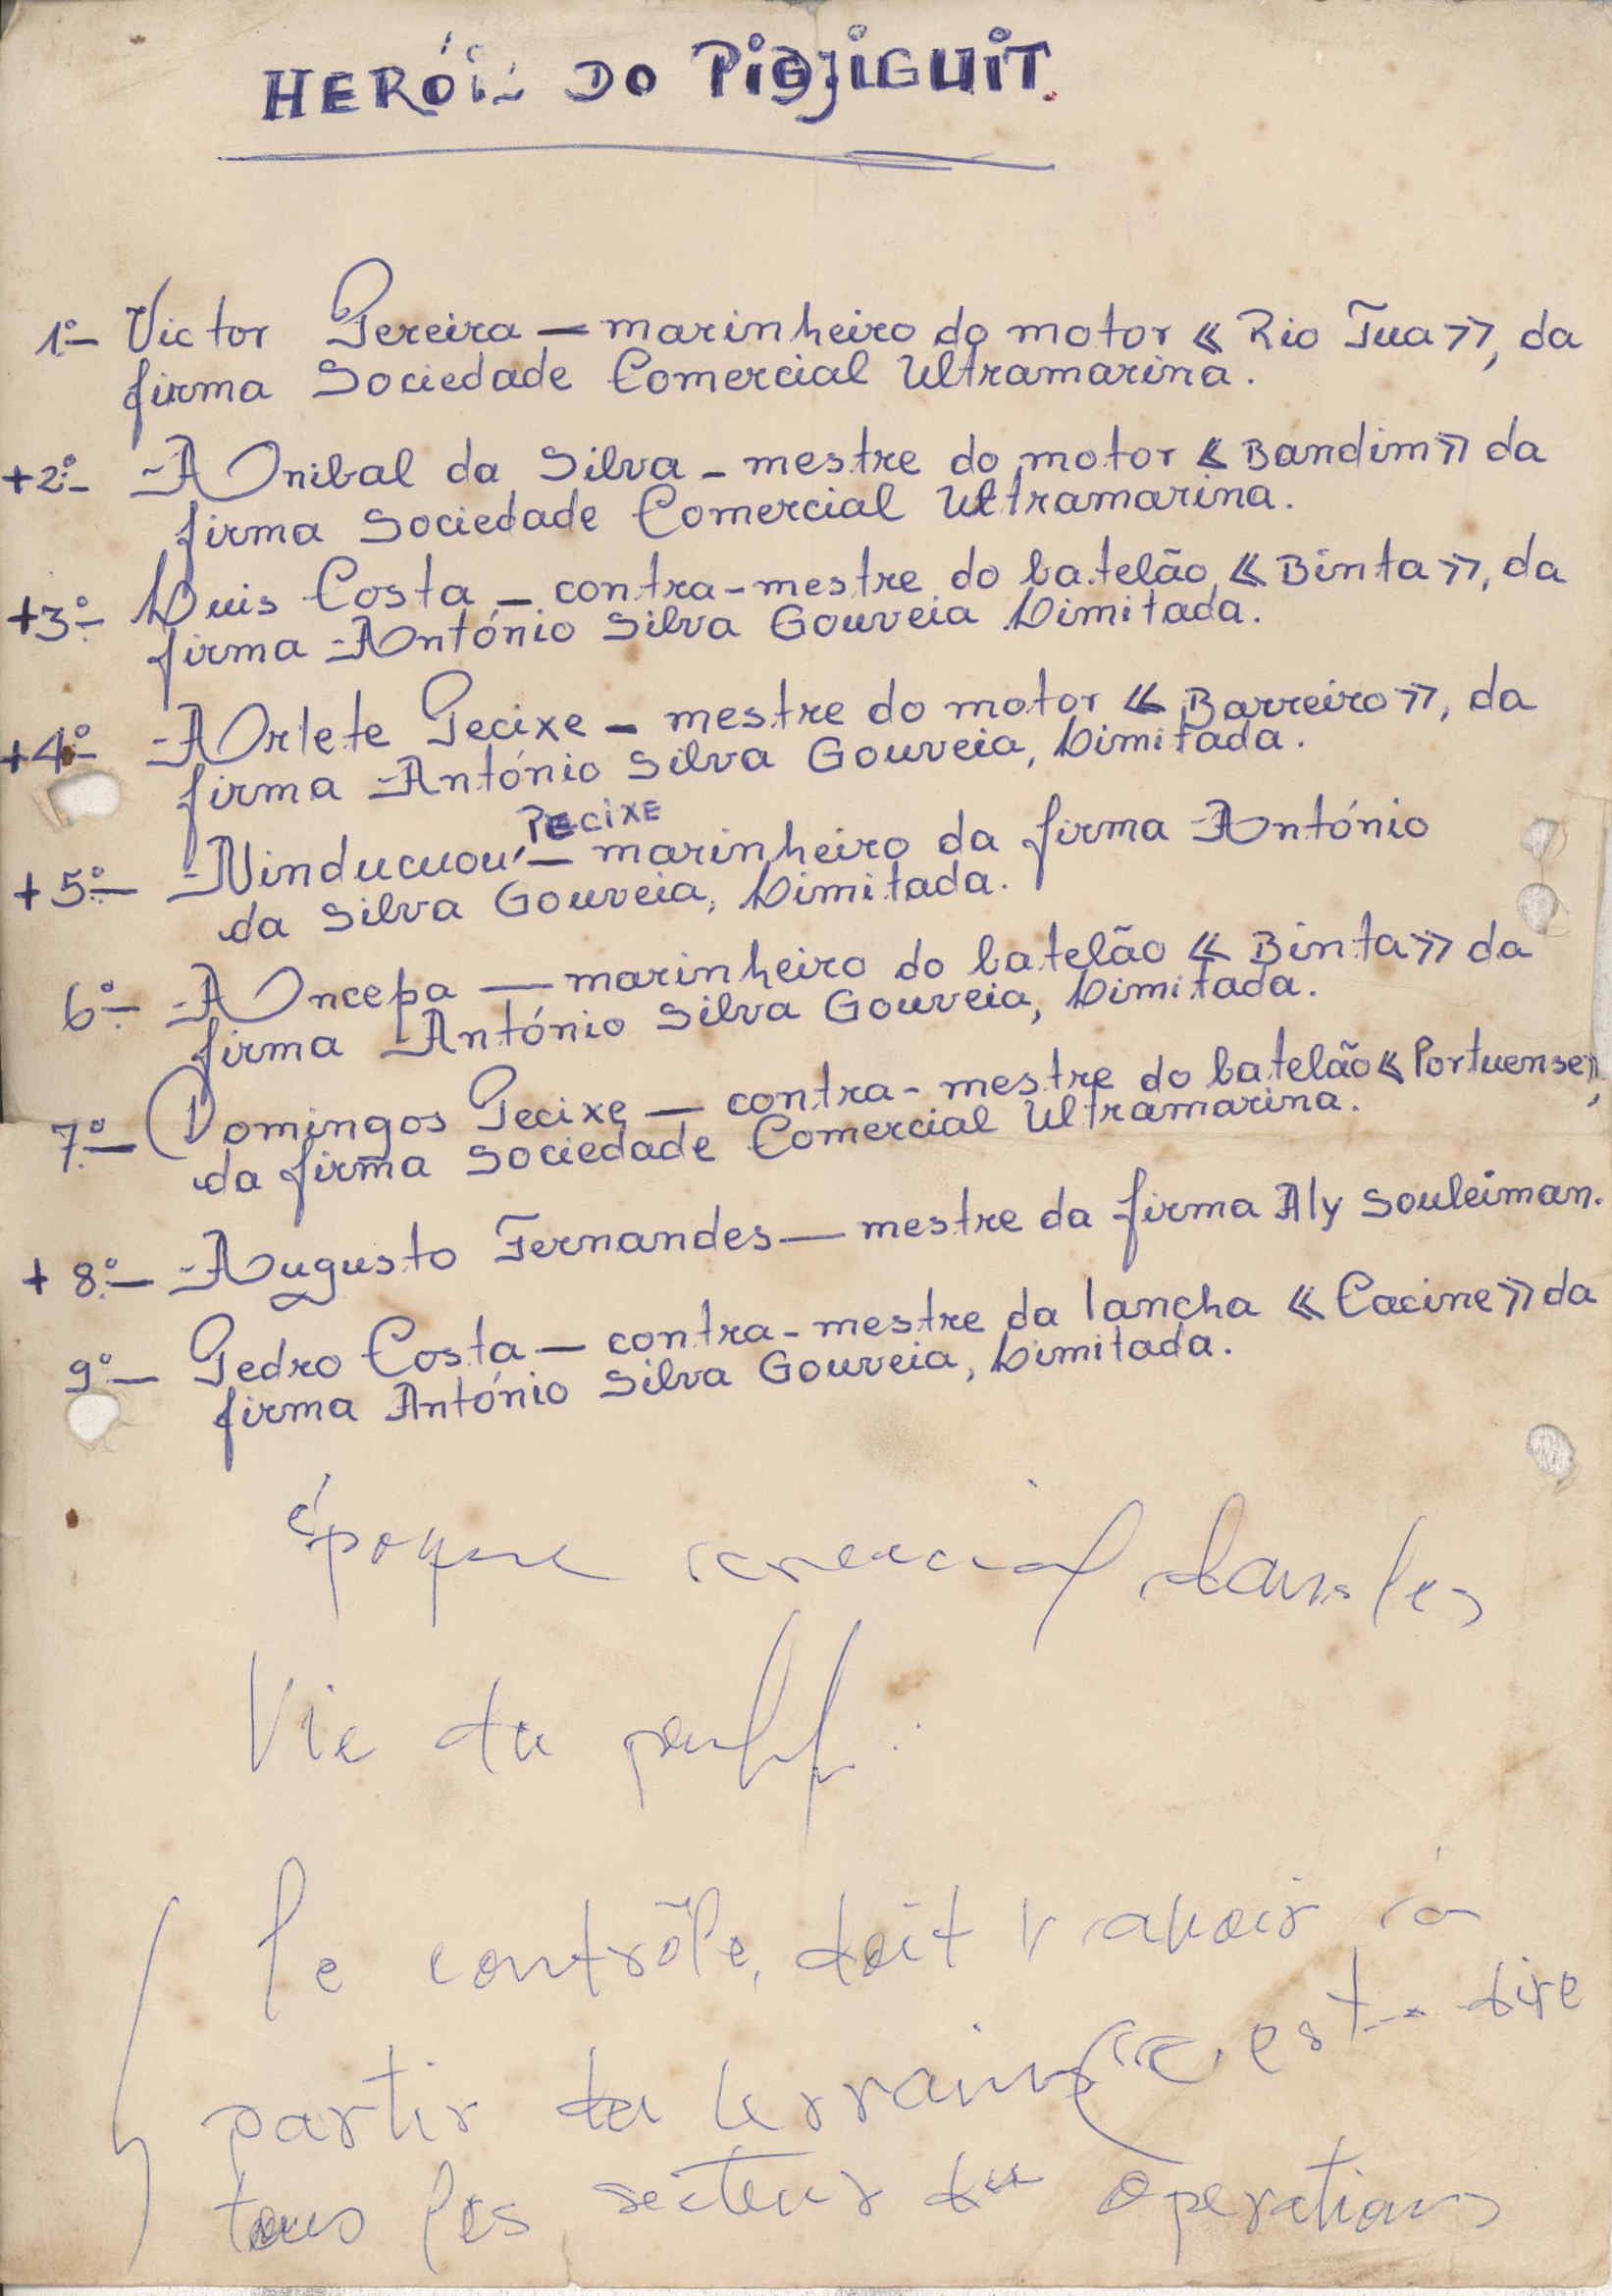 HERÓIS DO PIDJIGUIT.
1º- Victor Pereira - marinheiro do motor « Rio Tua», da
firma Sociedade Comercial Ultramarina.
+2º- Anibal da Silva - mestre do motor « Bandim» da
firma Sociedade Comercial Ultramarina.
+3º- Luis Costa - contra-mestre do batelão « Binta», da
firma António Silva Gouveia Limitada.
+4º- Arlete Pecixe - mestre do motor « Barreiro», da
firma António Silva Gouveia, Limitada.
PECIXE
+5º- Ninducuou' - marinheiro da firma António
da Silva Gouveia, Limitada.
6º- Ancepa - marinheiro do batelão « Binta» da
firma António Silva Gouveia, Limitada.
7º- Domingos Pecixe - contra-mestre do batelão « Portuense»,
da firma Sociedade Comercial Ultramarina.
+8º- Augusto Fernandes - mestre da firma Aly Souleiman.
9º- Pedro Costa - contra-mestre da lancha « Cacine» da
firma António Silva Gouveia, Limitada.
époque dans les
Vie du
le contrôle, doit y avoir à
partir du terrain (c'est-à-dire
tous les secteurs du operations